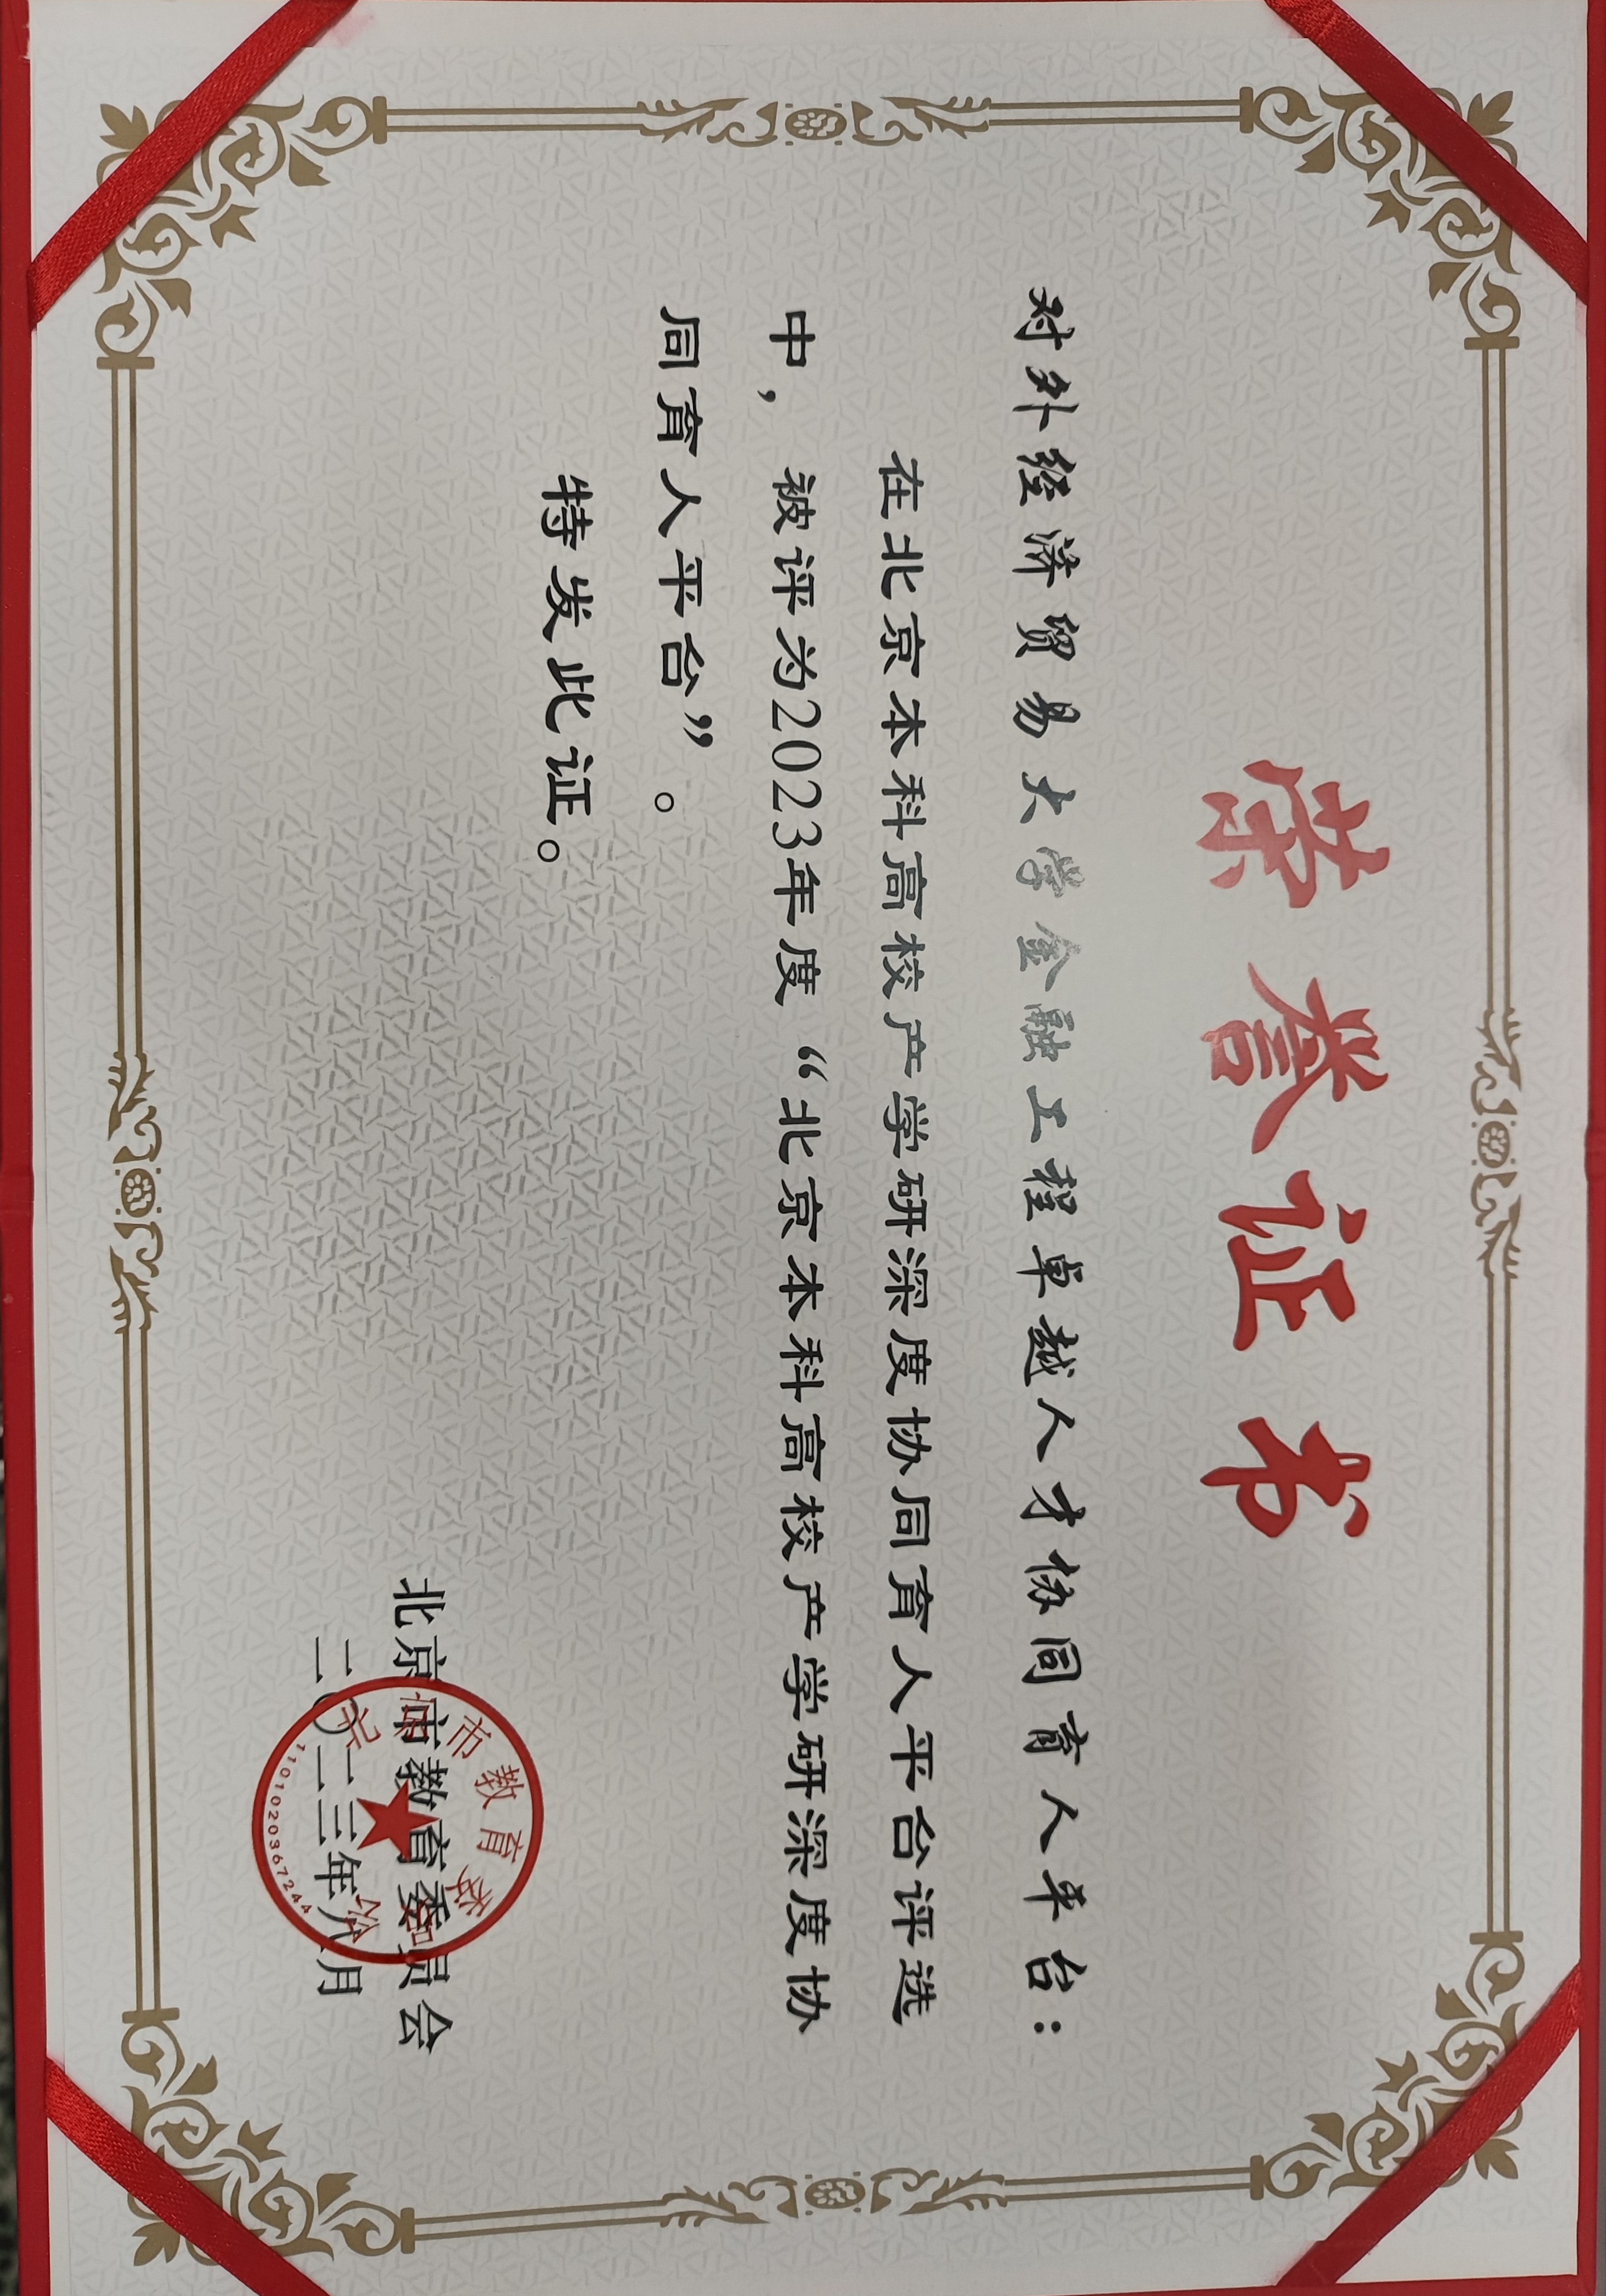 荣誉证书
对外经济贸易大学金融工程卓越人才协同育人平台：
在北京本科高校产学研深度协同育人平台评选
中，被评为2023年度“北京本科高校产学研深度协
同育人平台”。
特发此证。
北京市教育委员会
二〇二三年八月
北京市教育委员会
1101020367244